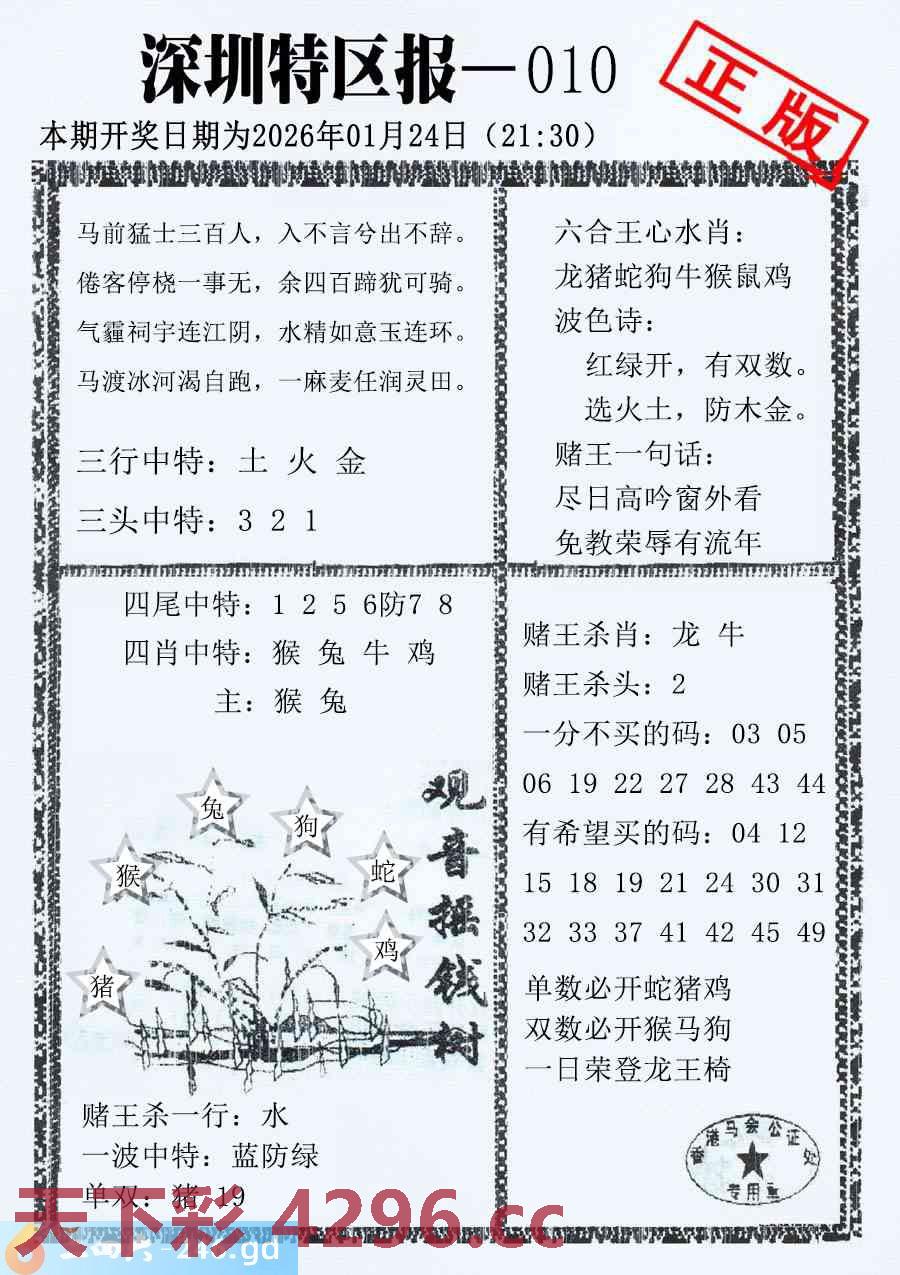 深圳特区报—010
正版
本期开奖日期为2026年01月24日（21:30）
马前猛士三百人，入不言兮出不辞。
倦客停桡一事无，余四百蹄犹可骑。
气霾祠宇连江阴，水精如意玉连环。
马渡冰河渴自跑，一麻麦任润灵田。
三行中特：土 火 金
三头中特：3 2 1
六合王心水肖：
龙猪蛇狗牛猴鼠鸡
波色诗：
红绿开，有双数。
选火土，防木金。
赌王一句话：
尽日高吟窗外看
免教荣辱有流年
四尾中特：1 2 5 6防7 8
四肖中特：猴 兔 牛 鸡
主：猴 兔
兔
狗
猴
蛇
鸡
猪
观音摇钱树
赌王杀一行：水
一波中特：蓝防绿
单双：猪 19
赌王杀肖：龙 牛
赌王杀头：2
一分不买的码：03 05
06 19 22 27 28 43 44
有希望买的码：04 12
15 18 19 21 24 30 31
32 33 37 41 42 45 49
单数必开蛇猪鸡
双数必开猴马狗
一日荣登龙王椅
香港马会公证处
专用章
天下彩 4296.cc